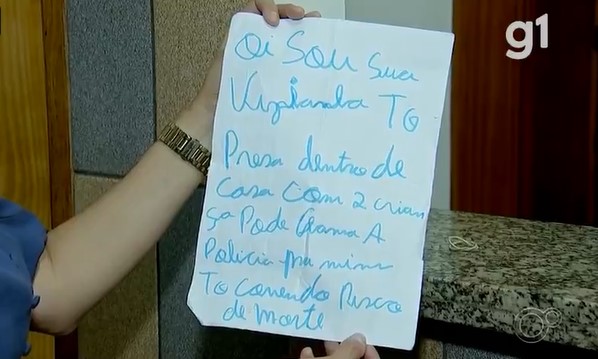 g1
Oi Sou sua
Vizinha To
Presa dentro de
casa com 2 crian
ça Pode Chama A
Policia pra mim
To correndo Risco
de morte